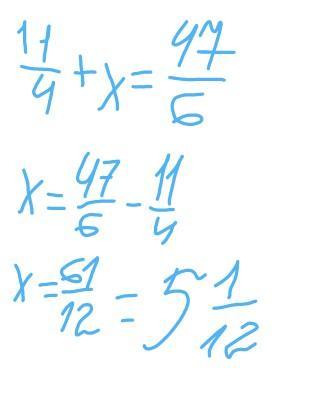 11/4 + x = 47/6
x = 47/6 - 11/4
x = 61/12 = 5 1/12